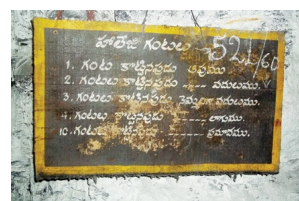 హాలేజి గంటలు 521/60
1. గంట కొట్టినపుడు ఆపుము.
2. గంటలు కొట్టినపుడు ---- వదులుము.
3. గంటలు కొట్టినపుడు మెల్లగా వదులుము.
4. గంటలు కొట్టినపుడు ------ లాగుము.
10. గంటలు కొట్టినపుడు ------ ప్రమాదము.